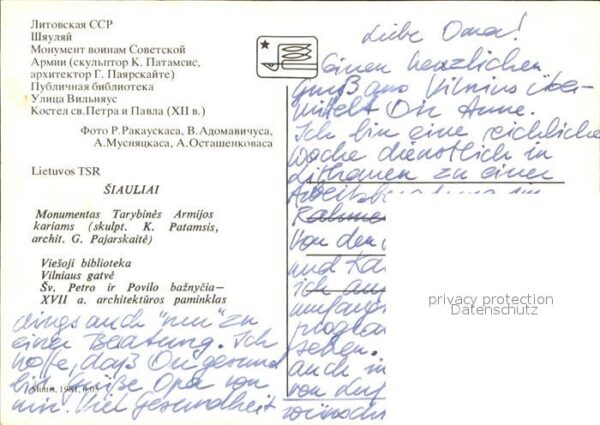 Литовская ССР
Шяуляй
Монумент воинам Советской
Армии (скульптор К. Патамсис,
архитектор Г. Паярскайте)
Публичная библиотека
Улица Вильняус
Костел св.Петра и Павла (XII в.)
Фото Р.Ракаускаса, В.Адомавичуса,
А.Мусняцкаса, А.Осташенковаса
Lietuvos TSR
ŠIAULIAI
Monumentas Tarybinės Armijos
kariams (skulpt. K. Patamsis,
archit. G. Pajarskaitė)
Viešoji biblioteka
Vilniaus gatvė
Šv. Petro ir Povilo bažnyčia—
XVII a. architektūros paminklas
Liebe Oma!
Einen herzlichen
Gruß aus Vilnius über-
mittelt Dir Anne.
Ich bin eine reichliche
Woche dienstlich in
Litauen zu einer
Rahmen
Von den
und Ka
ich
umfang
progra
sehen.
auch in
von
wünscht
privacy protection
Datenschutz
dings auch "nur" zu
einer Beratung. Ich
hoffe, daß Du gesund
bist. Grüße Opa von
mir. Viel Gesundheit
Mintis, 1981,